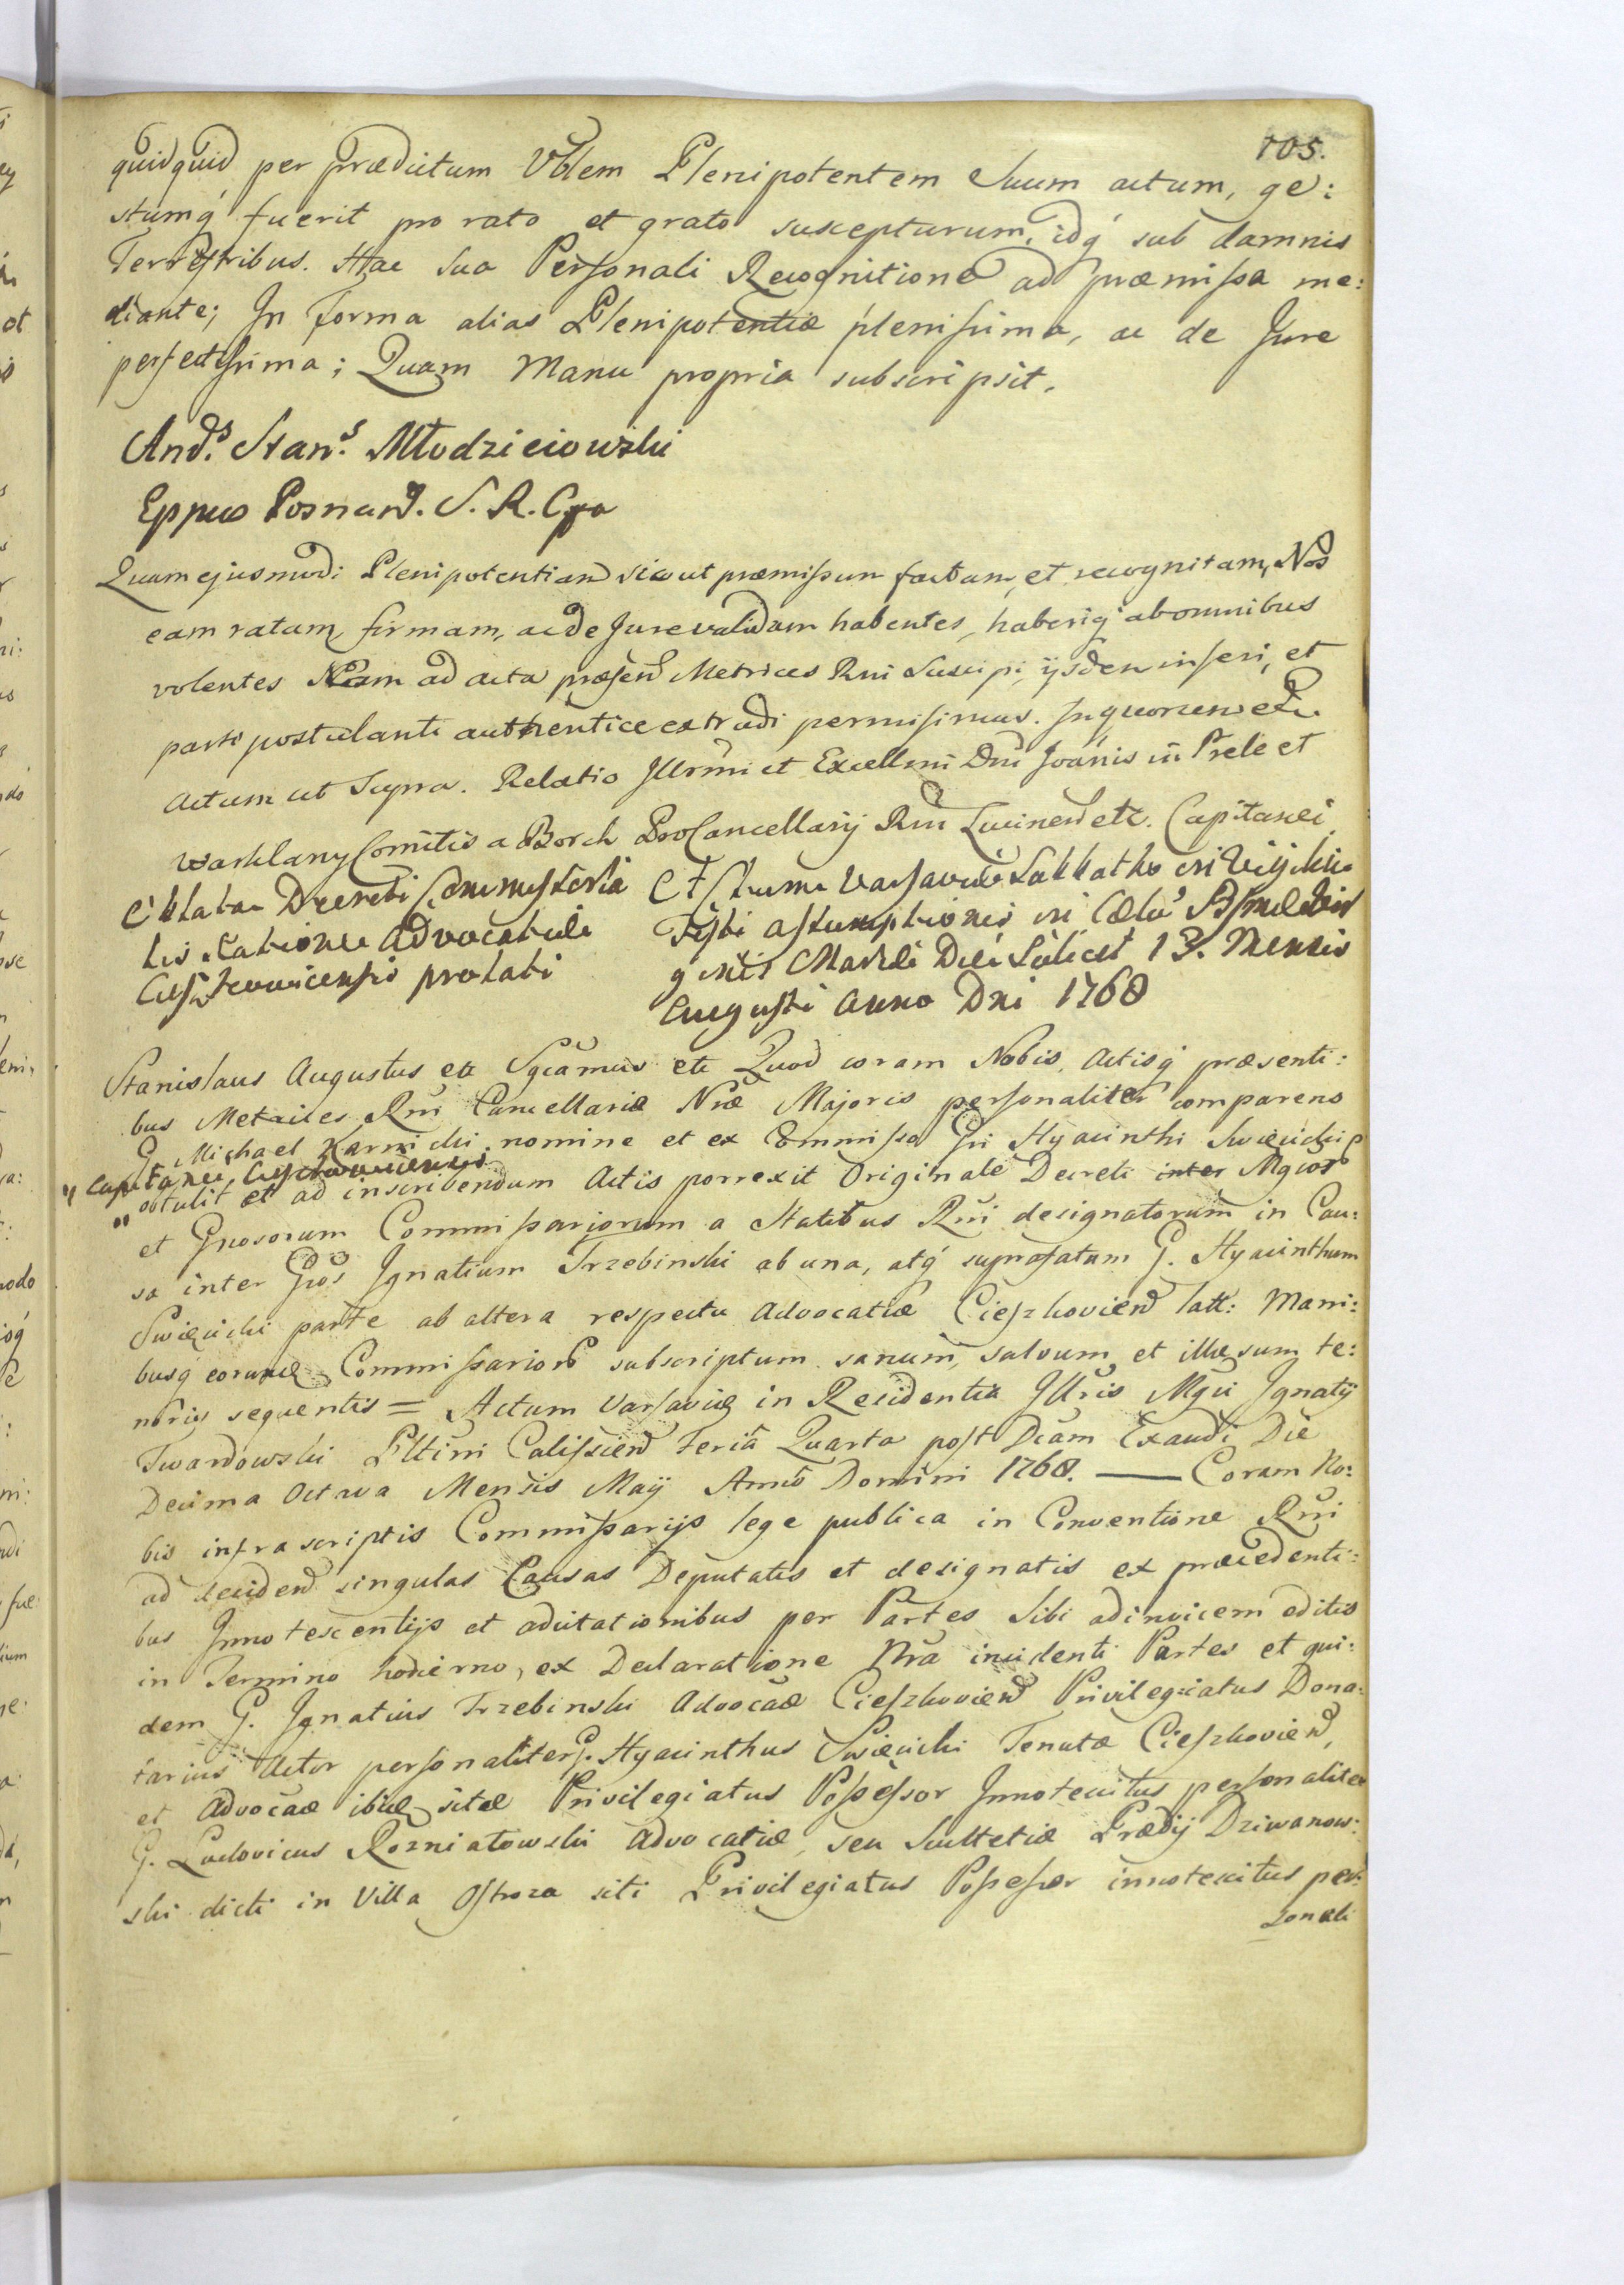 105.
quidquid per prædictum Vblem Plenipotentem Suum actum, ge:
stumq́ fuerit pro rato et grato suscepturum, idq́ sub damnis
Terrestribus. Hac Sua Personali Recognitione ad præmissa me:
diante; In Forma alias Plenipotentiæ plenissima, ac de Jure
perfectissima; Quam Manu propria subscripsit.
Ands. Stans. Młodzieiowski
Eppus Posnan. S. R. C
Quam ejusmodi Plenipotentiam sicut præmissum factam, et recognitam, Nos
eam ratam, firmam, ac de Jure validam habentes, haberiq́ ab omnibus
volentes Eam ad acta præsen Metrices Rni Suscipi, ijsdem inseri, et
parti postulanti authentice extradi permisimus. In quorum etc.
Actum ut Supra. Relatio Illrmi et Excellmi Dni Joānis in Prele et
Warklany Comitis a Borch ProCancellarij Rni Lucinen etc. Capitanei
Oblata Decreti Commissorialis ratione Advocatiæ
Cięszkowicensis prolati
Actum Varsaviæ Sabbatho in Vigilia
Festi Assumptionis in Cælū Bmæ Vir
ginis Mariæ Die Scilicet 13. Mensis
Augusti Anno Dni 1768
Stanislaus Augustus etc Sgcamus etc Quod coram Nobis, Actisq́ præsenti:
bus Metrices Rni Cancellariæ Nræ Majoris personaliter comparens
G. Michael Karnicki, nomine et ex Commisso Gsi Hyacinthi Swięcicki
" Capitanei
" obtulit et ad inscribendum Actis porrexit Originale Decreti inter Mgcor
et Gnosorum Commissariorum a Statibus Rni designatorum in Cau:
sa inter Gsos Ignatium Trzebinski ab una, atq́ suprafatum G. Hyacinthum
Swięcicki parte ab altera respectu Advocatiæ Cieszkovien latt: Mani:
busq́ eorundem Commissarior subscriptum sanum, salvum et illæsum te:
noris sequentis = Actum Varsaviæ in Residentia Illris Mgci Ignatij
Twardowski Plttini Calissien Feriā Quarta post Dcām Exaudi Die
Decima Octava Mensis Maij Anno Domini 1768. — Coram No:
bis infrascriptis Commissarijs lege publica in Conventione Rni
ad deciden singulas Causas Deputatis et designatis ex præcedenti:
bus Innotescentijs et adcitationibus per Partes Sibi adinvicem editis
in Termino hodierno, ex Declaratione Nrā incidenti Partes et qui:
dem G. Ignatius Trzebinski Advocāæ Cieszkovien Privilegiatus Dona:
tarius Actor personaliter G. Hyacinthus Swięcicki Tenutæ Cieszkovien,
et Advocāæ ibidem sitæ Privilegiatus Possessor Innotescitus personaliter
G. Ludovicus Rozniatowski Advocatiæ, seu Scultetiæ Prædij Dziwanow:
ski dicti in Villa Ostroza siti Privilegiatus Possessor innotescitus per:
sonali